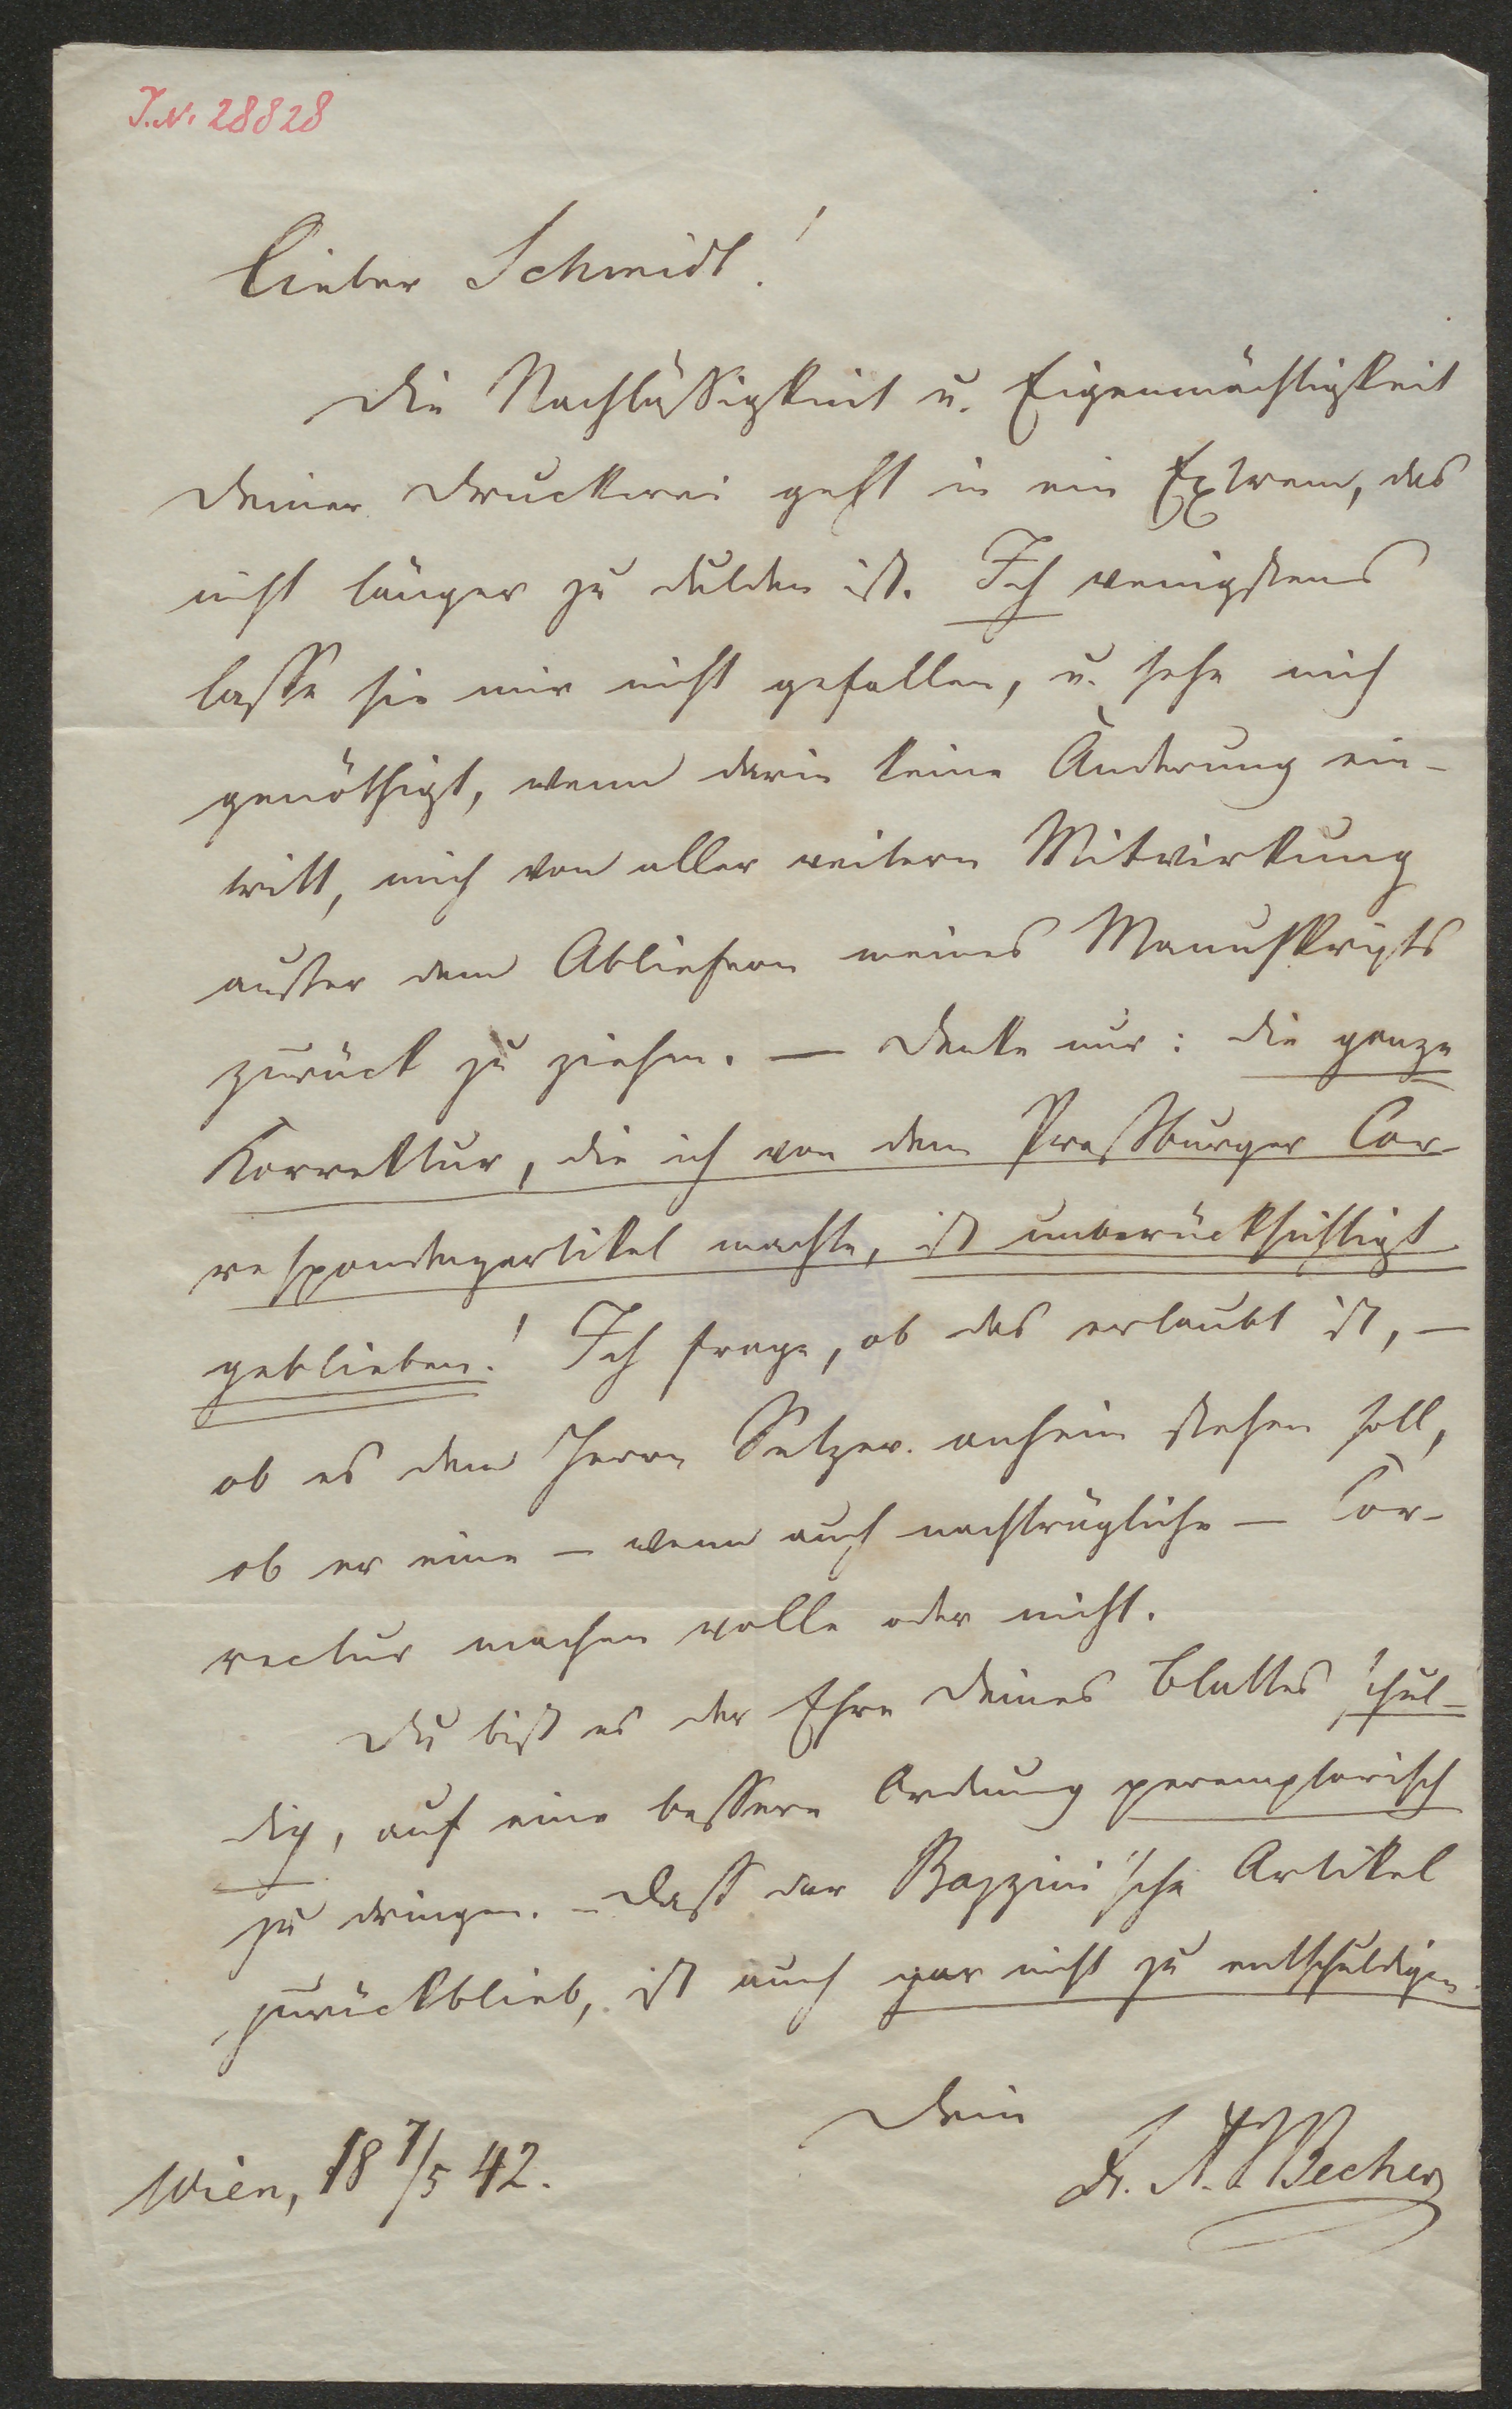 J.N. 28828
Lieber Schmidt!
Die Nachläßigkeit u. Eigenmächtigkeit
Deiner Druckerei geht in ein Extrem, das
nicht länger zu dulden ist. Ich wenigstens
lasse sie mir nicht gefallen, u. sehe mich
genöthigt, wenn darin keine Änderung ein-
tritt, mich von aller weitern Mitwirkung
außer dem Abliefern meines Manuskripts
zurück zu ziehen. — Denke nur: die ganze
Korrektur, die ich von dem Preßburger Cor-
respondenzartikel machte, ist unberücksichtigt
geblieben! Ich frage, ob das erlaubt ist, —
ob es dem Herrn Setzer anheim stehen soll,
ob er eine — wenn auch nachträgliche — Cor-
rectur machen wolle oder nicht.
Du bist es der Ehre Deines Blattes schul-
dig, auf eine bessere Ordnung peremptorisch
zu dringen. – Dass der Bazzini'sche Artikel
zurückblieb, ist auch gar nicht zu entschuldigen.
Dein
Wien, 18 7/5 42.
Dr. A. J. Becher